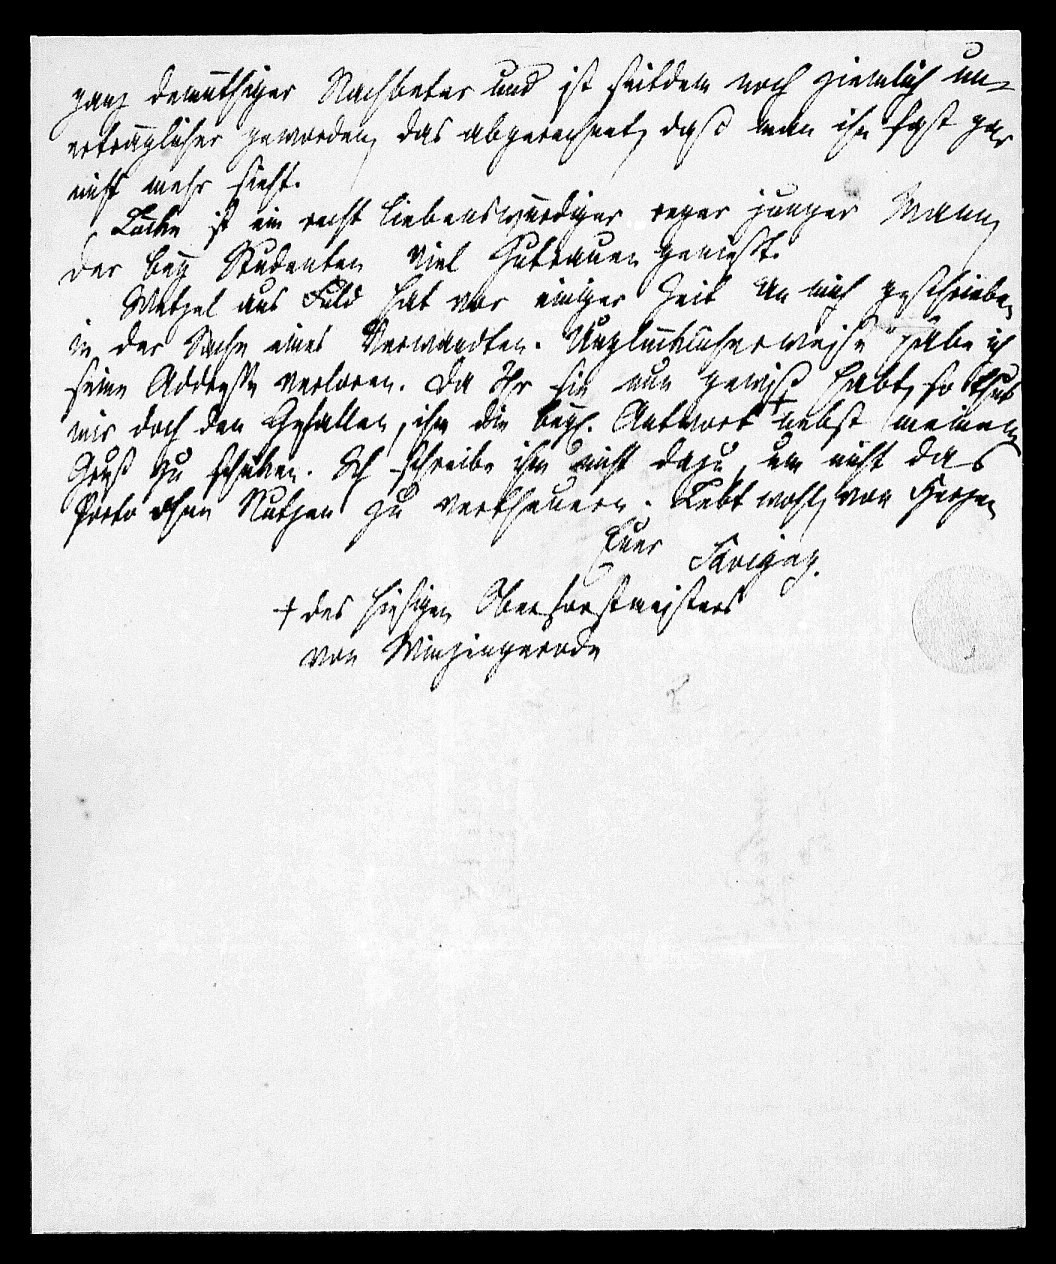 ganz demüthiger Nachbeter und ist seitdem noch ziemlich un-
erträglicher geworden, das abgerechnet, daß man ihn fast gar
nicht mehr sieht.
Lücke ist ein recht liebenswürdiger reger junger Mann,
der bey Studenten viel Zutrauen genießt.
Wetzel aus Fuld hat vor einiger Zeit an mich geschrieben
in der Sache eines Verwandten. Unglücklicherweise habe ich
seine Addresse verloren. Da Ihr sie nun gewiß habt, so thut
mir doch den Gefallen, ihm die beyl. Antwort + nebst meinem
Gruß zu schicken. Ich schreibe ihm nicht dazu, um nicht das
Porto ohne Nutzen zu vertheuern. Lebt wohl, von Herzen
Euer Savigny.
+ des hiesigen Oberforstmeisters
von Winzingerode